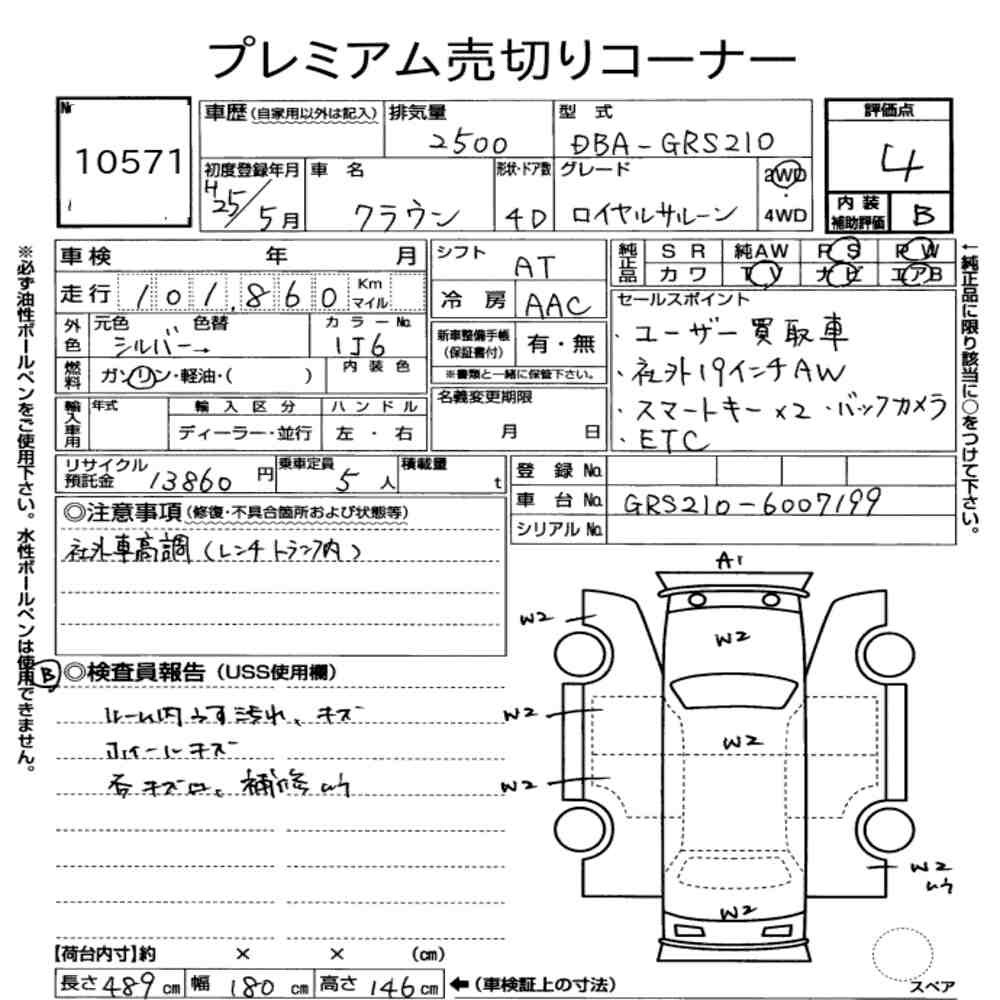 プレミアム売切りコーナー
Nr
10571
車歴(自家用以外は記入)
排気量
2500
型 式
DBA-GRS210
評価点
4
初度登録年月
H25/5月
車 名
クラウン
形状・ドア数
4D
グレード
ロイヤルサルーン
2WD
・
4WD
内 装
補助評価
B
車検 年 月
シフト
AT
純正品
S R 純AW P S P W
カ ワ T V ナ ビ エアB
走行 101,860 Km
マイル
冷 房
AAC
セールスポイント
・ユーザー買取車
・社外19インチAW
・スマートキー×2 ・バックカメラ
・ETC
外色
元色 色替
シルバー→
カラーNo.
1J6
新車整備手帳
(保証書付)
有・無
※書類と一緒に保管下さい。
燃料
ガソリン・軽油・( )
内 装 色
名義変更期限
月 日
輸入車用
年式
輸 入 区 分
ディーラー・並行
ハ ン ド ル
左 ・ 右
リサイクル
預託金
13860 円
乗車定員
5 人
積載量
t
登 録 No.
車 台 No. GRS210-6007199
シリアル No.
◎注意事項(修復・不具合箇所および状態等)
社外車高調(レンチトランク内)
B
◎検査員報告(USS使用欄)
ルーム内うす汚れ、キズ
ホイールキズ
各キズ凹、補修
A1
W2
W2
W2
W2
W2
W2
W2
スペア
【荷台内寸】約 × × (cm)
長さ 489 cm 幅 180 cm 高さ 146 cm ←(車検証上の寸法)
※必ず油性ボールペンをご使用下さい。水性ボールペンは使用できません。
←純正品に限り該当に○をつけて下さい。